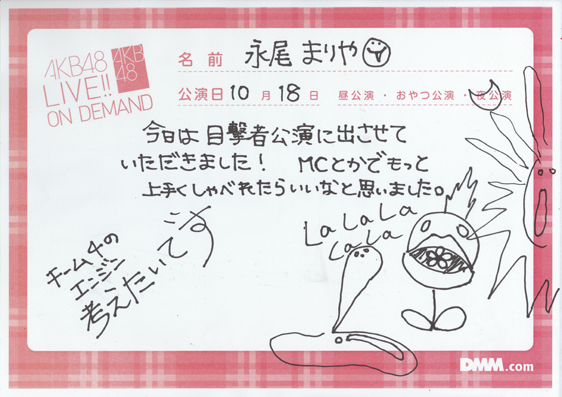 AKB48
LIVE!!
ON DEMAND
AKB
48
名前 永尾まりや
公演日 10月18日 昼公演・おやつ公演・夜公演
今日は目撃者公演に出させて
いただきました! MCとかでもっと
上手くしゃべれたらいいなと思いました。
チーム4の
エンジン
考えたいです
LaLaLa
LaLa
DMM.com